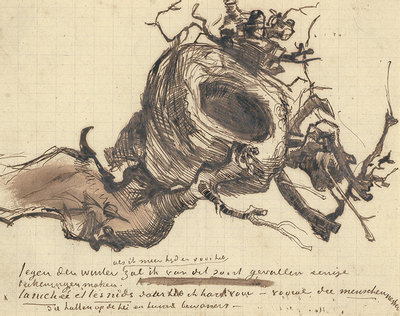 als ik meer tijd er voor heb
tegen den winter zal ik van dit soort gevallen eenige
teekeningen maken.
La nichée et les nids daar heb ik hart voor – vooral die menschennesten
die hutten op de hei en hunne bewoners –